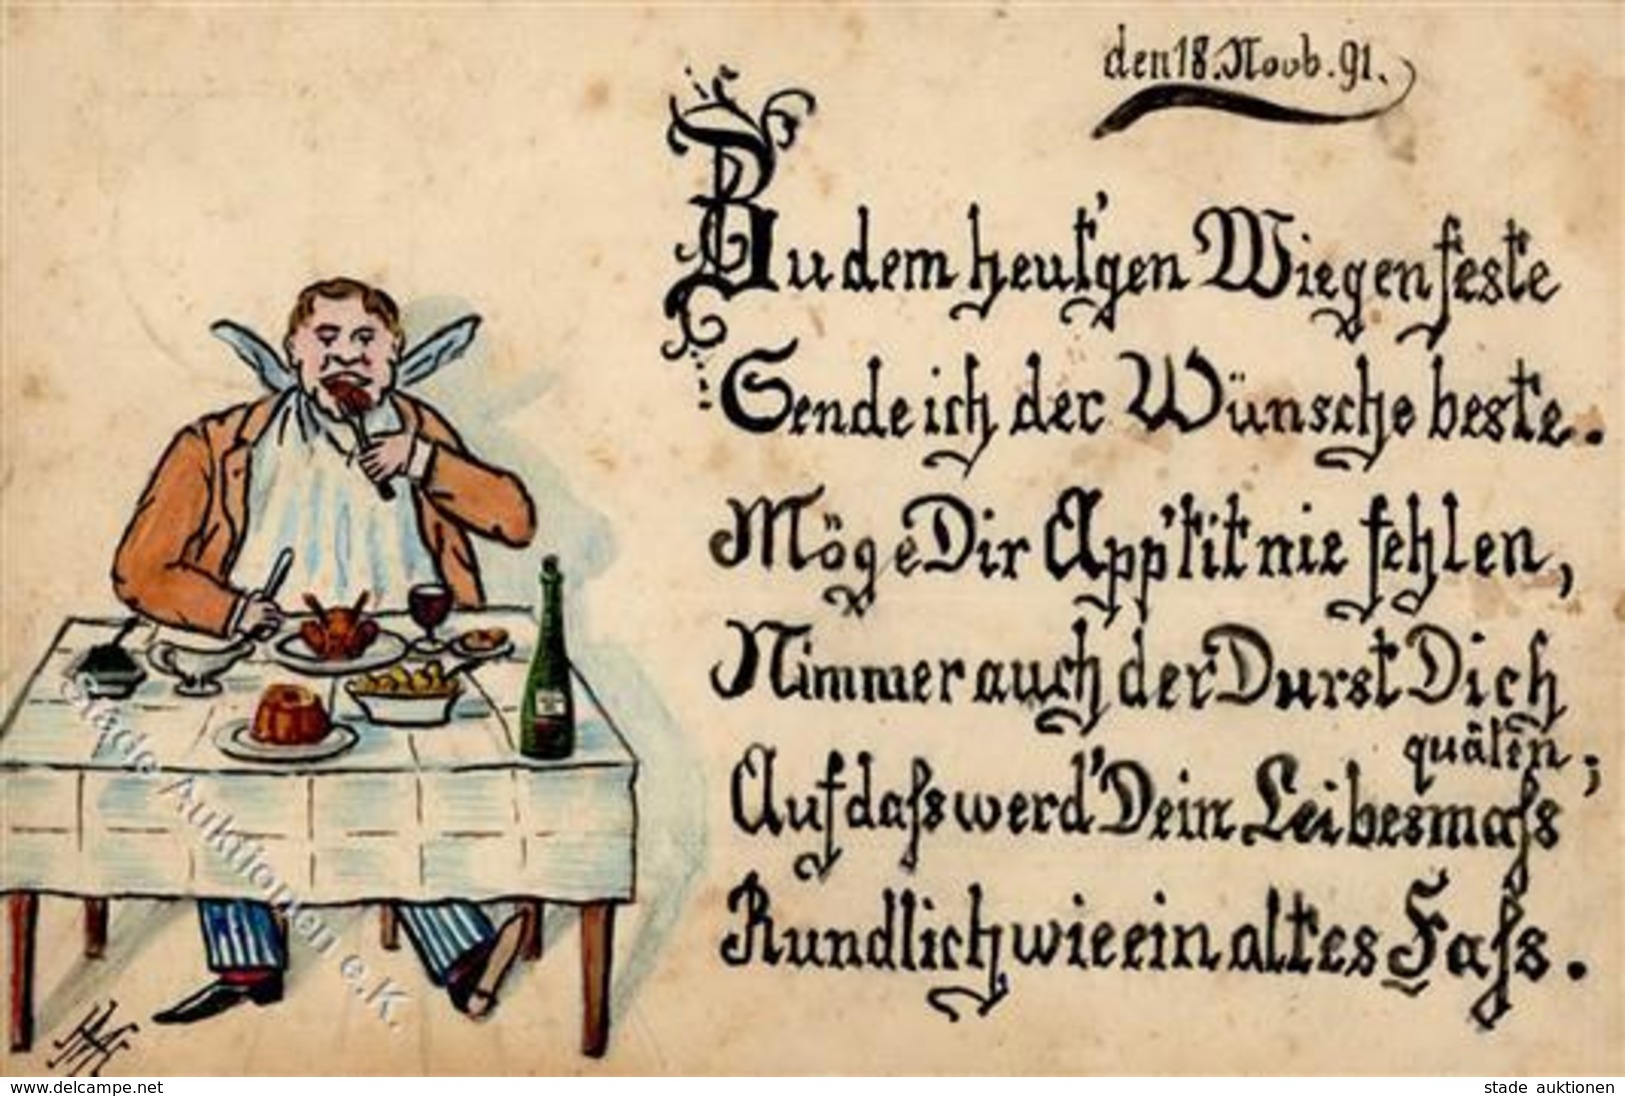 den 18. Novb. 91.
Zu dem heut'gen Wiegenfeste
Sende ich der Wünsche beste.
Möge Dir App'tit nie fehlen,
Nimmer auch der Durst Dich
quälen;
Auf daſs werd' Dein Leibesmaſs
Rundlich wie ein altes Faſs.
Stade Auktionen e.K.
www.delcampe.net
stade auktionen